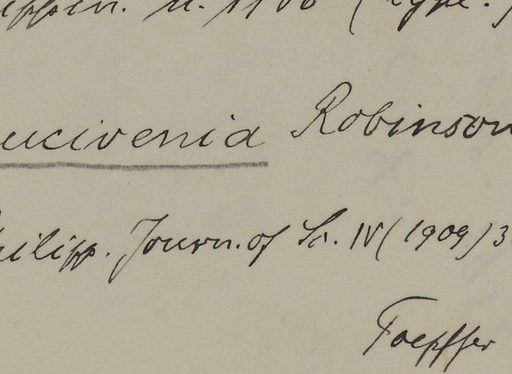 n. 1788 (Type.)
ucivenia Robinson
hilipp. Journ. of Sc. IV (1909) 3
Toepffer